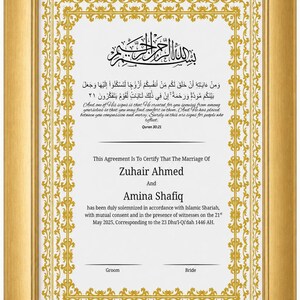 بسم الله الرحمن الرحيم
وَمِنْ ءَايَٰتِهِۦٓ أَنْ خَلَقَ لَكُم مِّنْ أَنفُسِكُمْ أَزْوَٰجًا لِّتَسْكُنُوٓا۟ إِلَيْهَا وَجَعَلَ
بَيْنَكُم مَّوَدَّةً وَرَحْمَةً ۚ إِنَّ فِى ذَٰلِكَ لَـَٔايَٰتٍ لِّقَوْمٍ يَتَفَكَّرُونَ ٢١
And one of His signs is that He created for you spouses from among
yourselves so that you may find comfort in them. And He has placed
between you compassion and mercy. Surely in this are signs for people who
reflect.
Quran 30:21
This Agreement Is To Certify That The Marriage Of
Zuhair Ahmed
And
Amina Shafiq
has been duly solemnized in accordance with Islamic Shariah,
with mutual consent and in the presence of witnesses on the 21st
May 2025, Corresponding to the 23 Dhu'l-Qi'dah 1446 AH.
Groom
Bride